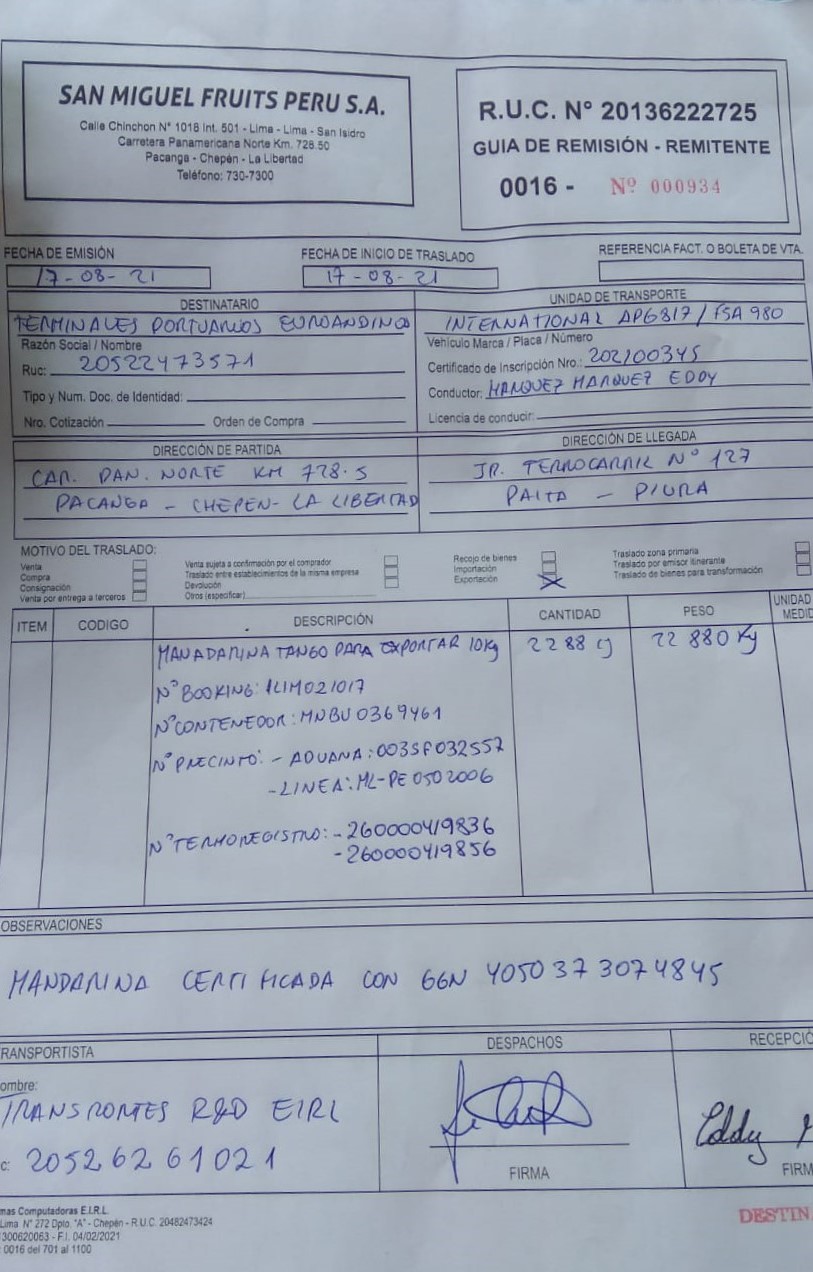 SAN MIGUEL FRUITS PERU S.A.
Calle Chinchon N° 1018 Int. 501 - Lima - Lima - San Isidro
Carretera Panamericana Norte Km. 728.50
Pacanga - Chepén - La Libertad
Teléfono: 730-7300
R.U.C. N° 20136222725
GUIA DE REMISIÓN - REMITENTE
0016 - Nº 000934
FECHA DE EMISIÓN
17-08-21
FECHA DE INICIO DE TRASLADO
17-08-21
REFERENCIA FACT. O BOLETA DE VTA.
DESTINATARIO
TERMINALES PORTUARIOS EUROANDINOS
Razón Social / Nombre
Ruc: 20522473571
Tipo y Num. Doc. de Identidad:
Nro. Cotización Orden de Compra
UNIDAD DE TRANSPORTE
INTERNATIONAL AP6817 / FSA 980
Vehículo Marca / Placa / Número
Certificado de Inscripción Nro.: 202100345
Conductor: MARQUEZ MARQUEZ EDDY
Licencia de conducir:
DIRECCIÓN DE PARTIDA
CAR. PAN. NORTE KM 728.5
PACANGA - CHEPEN - LA LIBERTAD
DIRECCIÓN DE LLEGADA
JR. FERROCARRIL N° 127
PAITA - PIURA
MOTIVO DEL TRASLADO:
Venta
Compra
Consignación
Venta por entrega a terceros
Venta sujeta a confirmación por el comprador
Traslado entre establecimientos de la misma empresa
Devolución
Otros (especificar)
Recojo de bienes
Importación
Exportación X
Traslado zona primaria
Traslado por emisor itinerante
Traslado de bienes para transformación
ITEM CODIGO DESCRIPCIÓN CANTIDAD PESO UNIDAD MEDID
MANADARINA TANGO PARA EXPORTAR 10Kg 2288 cj 22 880 Kg
N° BOOKING: 1LIM021017
N° CONTENEDOR: MNBU 0369461
N° PRECINTO: - ADUANA: 003SF032557
- LINEA: ML-PE 0502006
N° TERMOREGISTRO: - 260000419836
- 260000419856
OBSERVACIONES
MANDARINA CERTIFICADA CON GGN 4050373074845
TRANSPORTISTA
ombre:
TRANSPORTES R&D EIRL
c: 20526261021
DESPACHOS
FIRMA
RECEPCIÓ
Eddy M
FIRM
mas Computadoras E.I.R.L.
Lima N° 272 Dpto. "A" - Chepén - R.U.C. 20482473424
300620063 - F.I. 04/02/2021
: 0016 del 701 al 1100
DESTIN